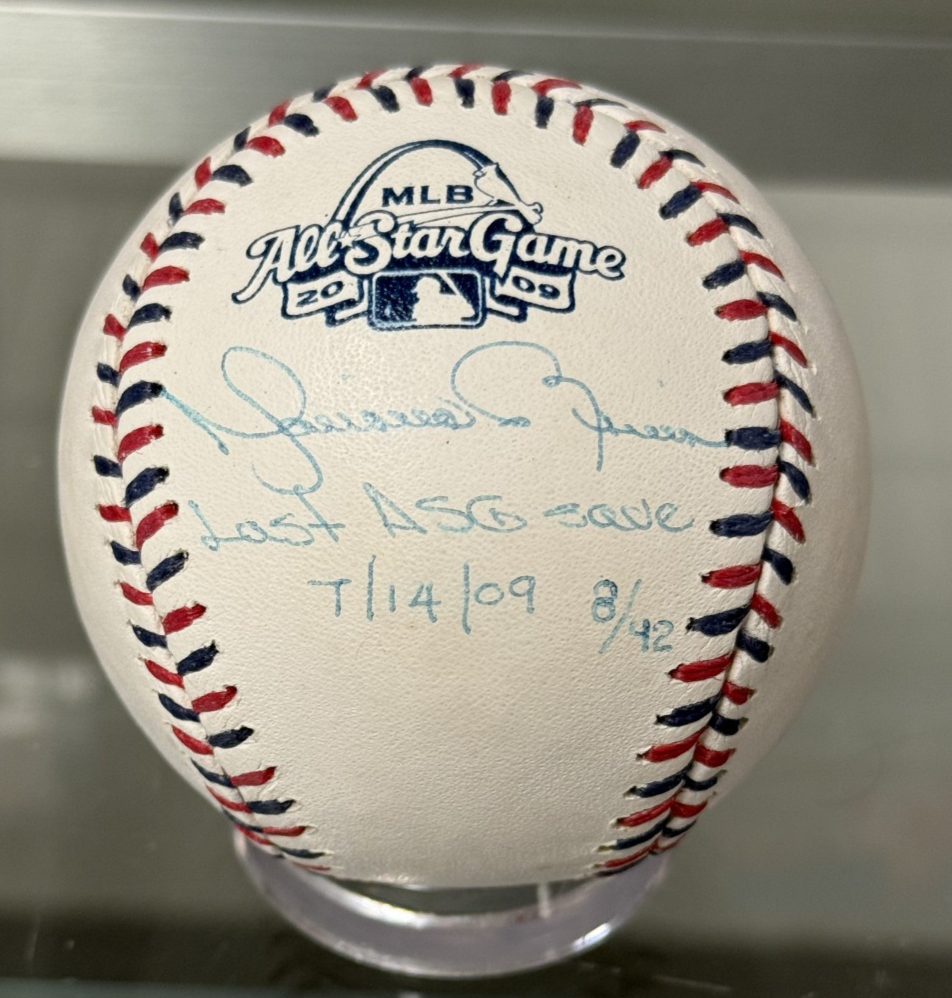 MLB
All Star Game
20 09
Mariano Rivera
Last ASG save
7/14/09 8/42